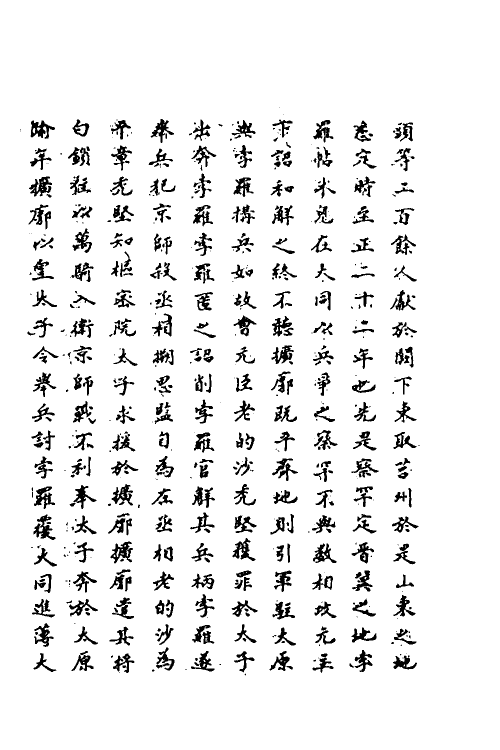 頭等二百餘人獻於闕下東取莒州於是山東之地
悉定時至正二十二年也先是察罕定晉冀之地孛
羅帖木兒在大同以兵爭之察罕不與數相攻元主
下詔和解之終不聽擴廓既平齊地則引軍駐太原
與孛羅搆兵如故會元臣老的沙禿堅獲罪於太子
出奔孛羅孛羅匿之詔削孛羅官解其兵柄孛羅遂
舉兵犯京師殺丞相搠思監自為左丞相老的沙為
平章禿堅知樞密院太子求援於擴廓擴廓遣其將
白鎖住以萬騎入衛京師戰不利奉太子奔於太原
踰年擴廓以皇太子令舉兵討孛羅覆大同進薄大